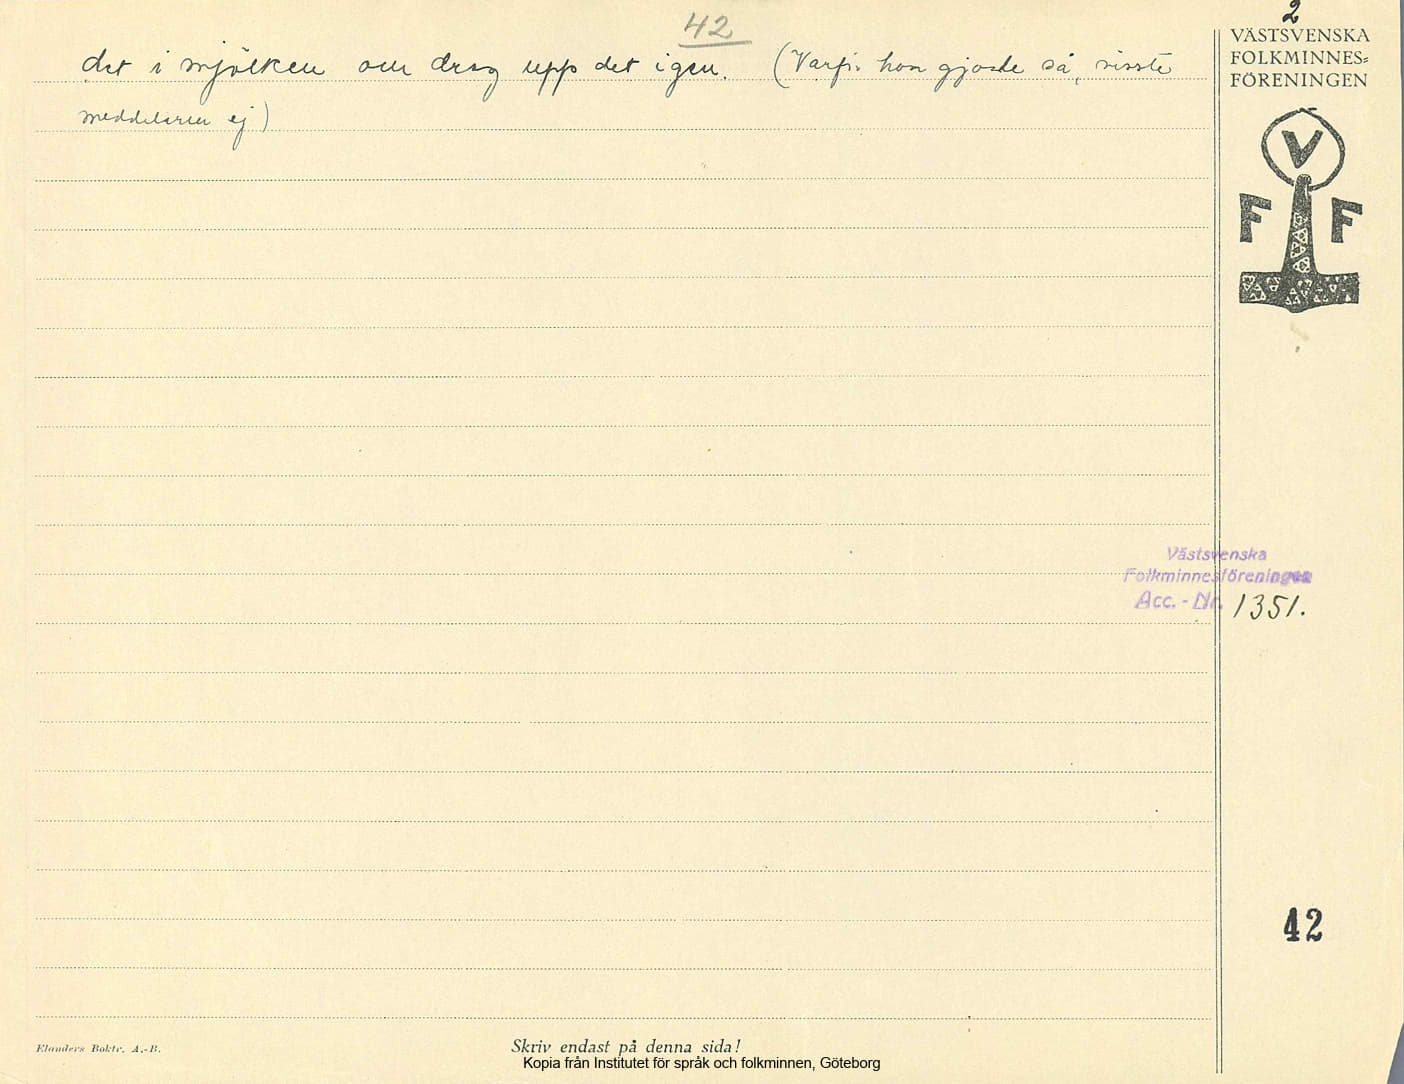 42
2
VÄSTSVENSKA
FOLKMINNES=
FÖRENINGEN
det i mjölken och drog upp det igen. (Varför hon gjorde så, visste
meddelaren ej)
V
F F
Västsvenska
Folkminnesföreningen
Acc. - Nr. 1351.
42
Elanders Boktr. A.-B.
Skriv endast på denna sida!
Kopia från Institutet för språk och folkminnen, Göteborg